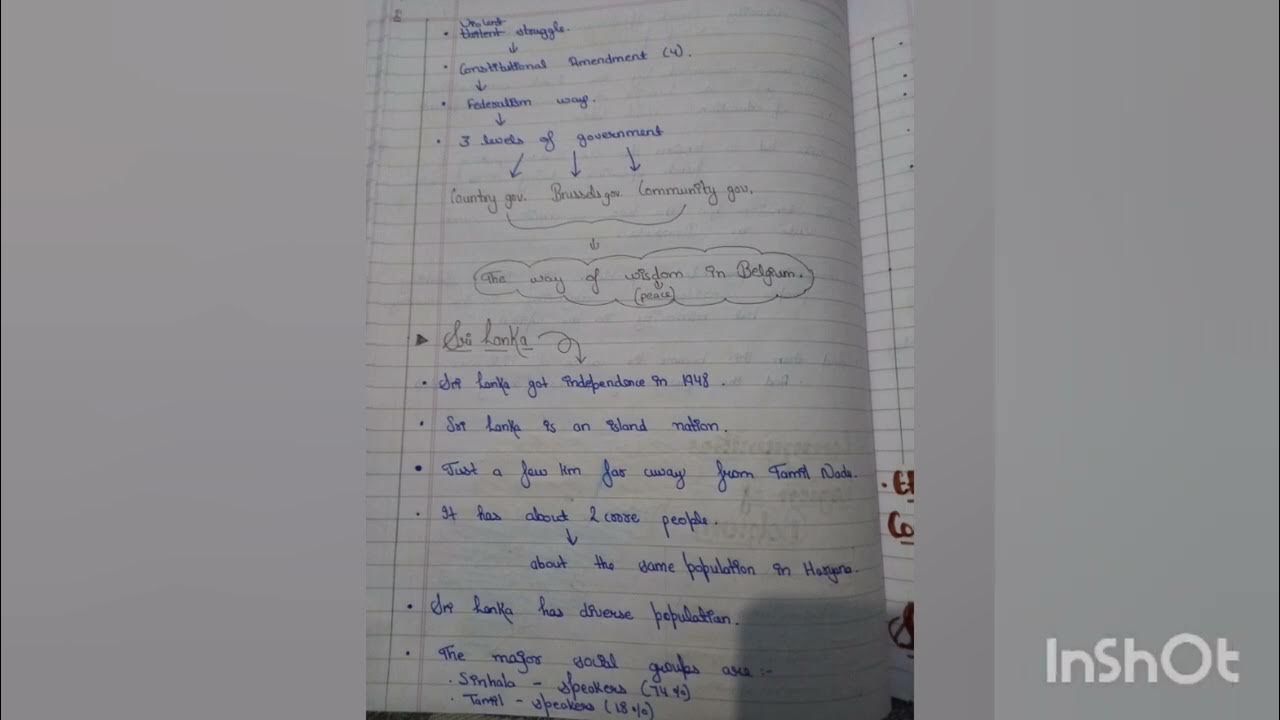 Violent
Violent struggle.
Constitutional Amendment (4).
Federalism way.
3 levels of government
Country gov. Brussels gov. Community gov.
The way of wisdom in Belgium.
(peace)
Sri Lanka
Sri Lanka got independence in 1948.
Sri Lanka is an island nation.
Just a few km far away from Tamil Nadu.
It has about 2 crore people.
about the same population in Haryana.
Sri Lanka has diverse population.
The major social groups are :-
Sinhala - speakers (74%)
Tamil - speakers (18%)
InShOt